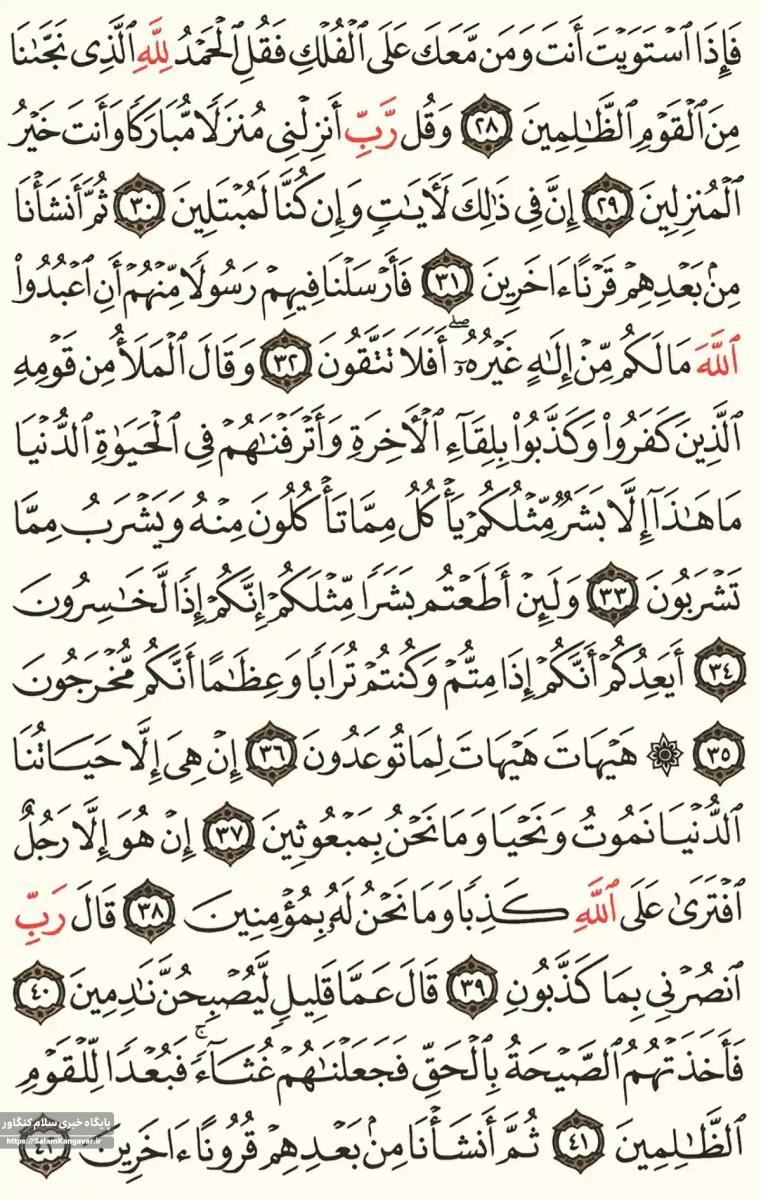 فَإِذَا ٱسْتَوَيْتَ أَنتَ وَمَن مَّعَكَ عَلَى ٱلْفُلْكِ فَقُلِ ٱلْحَمْدُ لِلَّهِ ٱلَّذِى نَجَّىٰنَا
مِنَ ٱلْقَوْمِ ٱلظَّـٰلِمِينَ ٢٨ وَقُل رَّبِّ أَنزِلْنِى مُنزَلًا مُّبَارَكًا وَأَنتَ خَيْرُ
ٱلْمُنزِلِينَ ٢٩ إِنَّ فِى ذَٰلِكَ لَـَٔايَـٰتٍ وَإِن كُنَّا لَمُبْتَلِينَ ٣٠ ثُمَّ أَنشَأْنَا
مِنۢ بَعْدِهِمْ قَرْنًا ءَاخَرِينَ ٣١ فَأَرْسَلْنَا فِيهِمْ رَسُولًا مِّنْهُمْ أَنِ ٱعْبُدُوا۟
ٱللَّهَ مَا لَكُم مِّنْ إِلَـٰهٍ غَيْرُهُۥٓ ۖ أَفَلَا تَتَّقُونَ ٣٢ وَقَالَ ٱلْمَلَأُ مِن قَوْمِهِ
ٱلَّذِينَ كَفَرُوا۟ وَكَذَّبُوا۟ بِلِقَآءِ ٱلْـَٔاخِرَةِ وَأَتْرَفْنَـٰهُمْ فِى ٱلْحَيَوٰةِ ٱلدُّنْيَا
مَا هَـٰذَآ إِلَّا بَشَرٌ مِّثْلُكُمْ يَأْكُلُ مِمَّا تَأْكُلُونَ مِنْهُ وَيَشْرَبُ مِمَّا
تَشْرَبُونَ ٣٣ وَلَئِنْ أَطَعْتُم بَشَرًا مِّثْلَكُمْ إِنَّكُمْ إِذًا لَّخَـٰسِرُونَ
٣٤ أَيَعِدُكُمْ أَنَّكُمْ إِذَا مِتُّمْ وَكُنتُمْ تُرَابًا وَعِظَـٰمًا أَنَّكُم مُّخْرَجُونَ
٣٥ ۞ هَيْهَاتَ هَيْهَاتَ لِمَا تُوعَدُونَ ٣٦ إِنْ هِىَ إِلَّا حَيَاتُنَا
ٱلدُّنْيَا نَمُوتُ وَنَحْيَا وَمَا نَحْنُ بِمَبْعُوثِينَ ٣٧ إِنْ هُوَ إِلَّا رَجُلٌ
ٱفْتَرَىٰ عَلَى ٱللَّهِ كَذِبًا وَمَا نَحْنُ لَهُۥ بِمُؤْمِنِينَ ٣٨ قَالَ رَبِّ
ٱنصُرْنِى بِمَا كَذَّبُونِ ٣٩ قَالَ عَمَّا قَلِيلٍ لَّيُصْبِحُنَّ نَـٰدِمِينَ ٤٠
فَأَخَذَتْهُمُ ٱلصَّيْحَةُ بِٱلْحَقِّ فَجَعَلْنَـٰهُمْ غُثَآءً ۚ فَبُعْدًا لِّلْقَوْمِ
ٱلظَّـٰلِمِينَ ٤١ ثُمَّ أَنشَأْنَا مِنۢ بَعْدِهِمْ قُرُونًا ءَاخَرِينَ ٤٢
پایگاه خبری سلام کنگاور
https://SalamKangavar.ir